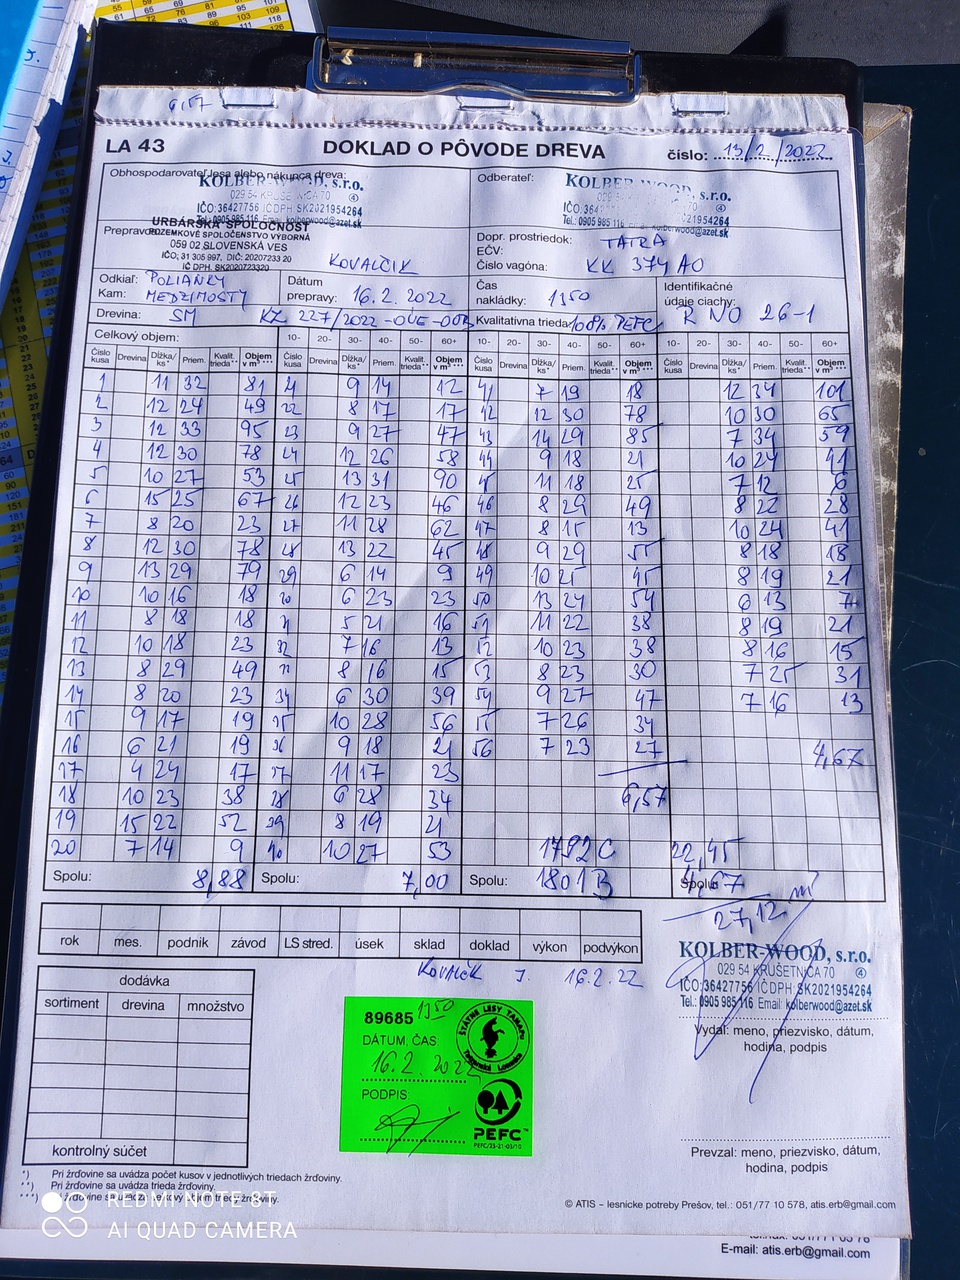 LA 43
DOKLAD O PÔVODE DREVA
číslo: 13/2/2022
Obhospodarovateľ lesa alebo nákupca dreva:
KOLBER-WOOD, s.r.o.
029 54 KRUŠETNICA 70
IČO: 36427756 IČDPH: SK2021954264
Tel.: 0905 985 116 Email: kolberwood@azet.sk
Odberateľ:
KOLBER-WOOD, s.r.o.
IČO: 364 SK2021954264
Tel.: 0905 985 116 kolberwood@azet.sk
Prepravca:
URBÁRSKA SPOLOČNOSŤ
POZEMKOVÉ SPOLOČENSTVO VÝBORNÁ
059 02 SLOVENSKÁ VES
IČO: 31 305 997, DIČ: 20207233 20
IČ DPH. SK2020723320
KOVALČIK
Dopr. prostriedok: TATRA
EČV:
Číslo vagóna: KK 374 AO
Odkiaľ: POLIANKY
Kam: MEDZIMOSTY
Dátum prepravy: 16.2.2022
Čas nakládky: 1350
Identifikačné údaje ciachy: R NO 26-1
Drevina: SM
KZ 227/2022-OUE-OOP
Kvalitatívna trieda: 100% PEFC
Celkový objem: 10- 20- 30- 40- 50- 60+ 10- 20- 30- 40- 50- 60+ 10- 20- 30- 40- 50- 60+
Číslo kusa Drevina Dĺžka/ks* Priem. Kvalit. trieda** Objem v m³*** Číslo kusa Drevina Dĺžka/ks* Priem. Kvalit. trieda** Objem v m³*** Číslo kusa Drevina Dĺžka/ks* Priem. Kvalit. trieda** Objem v m³*** Číslo kusa Drevina Dĺžka/ks* Priem. Kvalit. trieda** Objem v m³***
1 11 32 81 21 9 14 12 41 7 19 18 12 34 101
2 12 24 49 22 8 17 17 42 12 30 78 10 30 65
3 12 33 95 23 9 27 47 43 14 29 85 7 34 59
4 12 30 78 24 12 26 58 44 9 18 21 10 24 41
5 10 27 53 25 13 31 90 45 11 18 25 7 12 6
6 15 25 67 26 12 23 46 46 8 29 49 8 22 28
7 8 20 23 27 11 28 62 47 8 15 13 10 24 41
8 12 30 78 28 13 22 45 48 9 29 55 8 18 18
9 13 29 79 29 6 14 9 49 10 25 45 8 19 21
10 10 16 18 30 6 23 23 50 13 24 54 6 13 7
11 8 18 18 31 5 21 16 51 11 22 38 8 19 21
12 10 18 23 32 7 16 13 52 10 23 38 8 16 15
13 8 29 49 33 8 16 15 53 8 23 30 7 25 31
14 8 20 23 34 6 30 39 54 9 27 47 7 16 13
15 9 17 19 35 10 28 56 55 7 26 34
16 6 21 19 36 9 18 21 56 7 23 27 4,67
17 4 24 17 37 11 17 23
18 10 23 38 38 6 28 34 6,57
19 15 22 52 39 8 19 21
20 7 14 9 40 10 27 53 1792 C 22,45
Spolu: 8,88 Spolu: 7,00 Spolu: 1801 B Spolu: 4,67
27,12 m³
rok mes. podnik závod LS stred. úsek sklad doklad výkon podvýkon
Kovalčik J. 16.2.22
KOLBER-WOOD, s.r.o.
029 54 KRUŠETNICA 70
IČO: 36427756 IČDPH: SK2021954264
Tel.: 0905 985 116 Email: kolberwood@azet.sk
Vydal: meno, priezvisko, dátum, hodina, podpis
dodávka
sortiment drevina množstvo
kontrolný súčet
89685
1350
DÁTUM, ČAS:
16.2.2022
PODPIS:
ŠTÁTNE LESY TANAPU
Tatranská Lomnica
PEFC™
PEFC/23-21-03/10
Prevzal: meno, priezvisko, dátum, hodina, podpis
*) Pri žrďovine sa uvádza počet kusov v jednotlivých triedach žrďoviny.
**) Pri žrďovine sa uvádza trieda žrďoviny.
© ATIS – lesnícke potreby Prešov, tel.: 051/77 10 578, atis.erb@gmail.com
REDMI NOTE 8T
AI QUAD CAMERA
E-mail: atis.erb@gmail.com